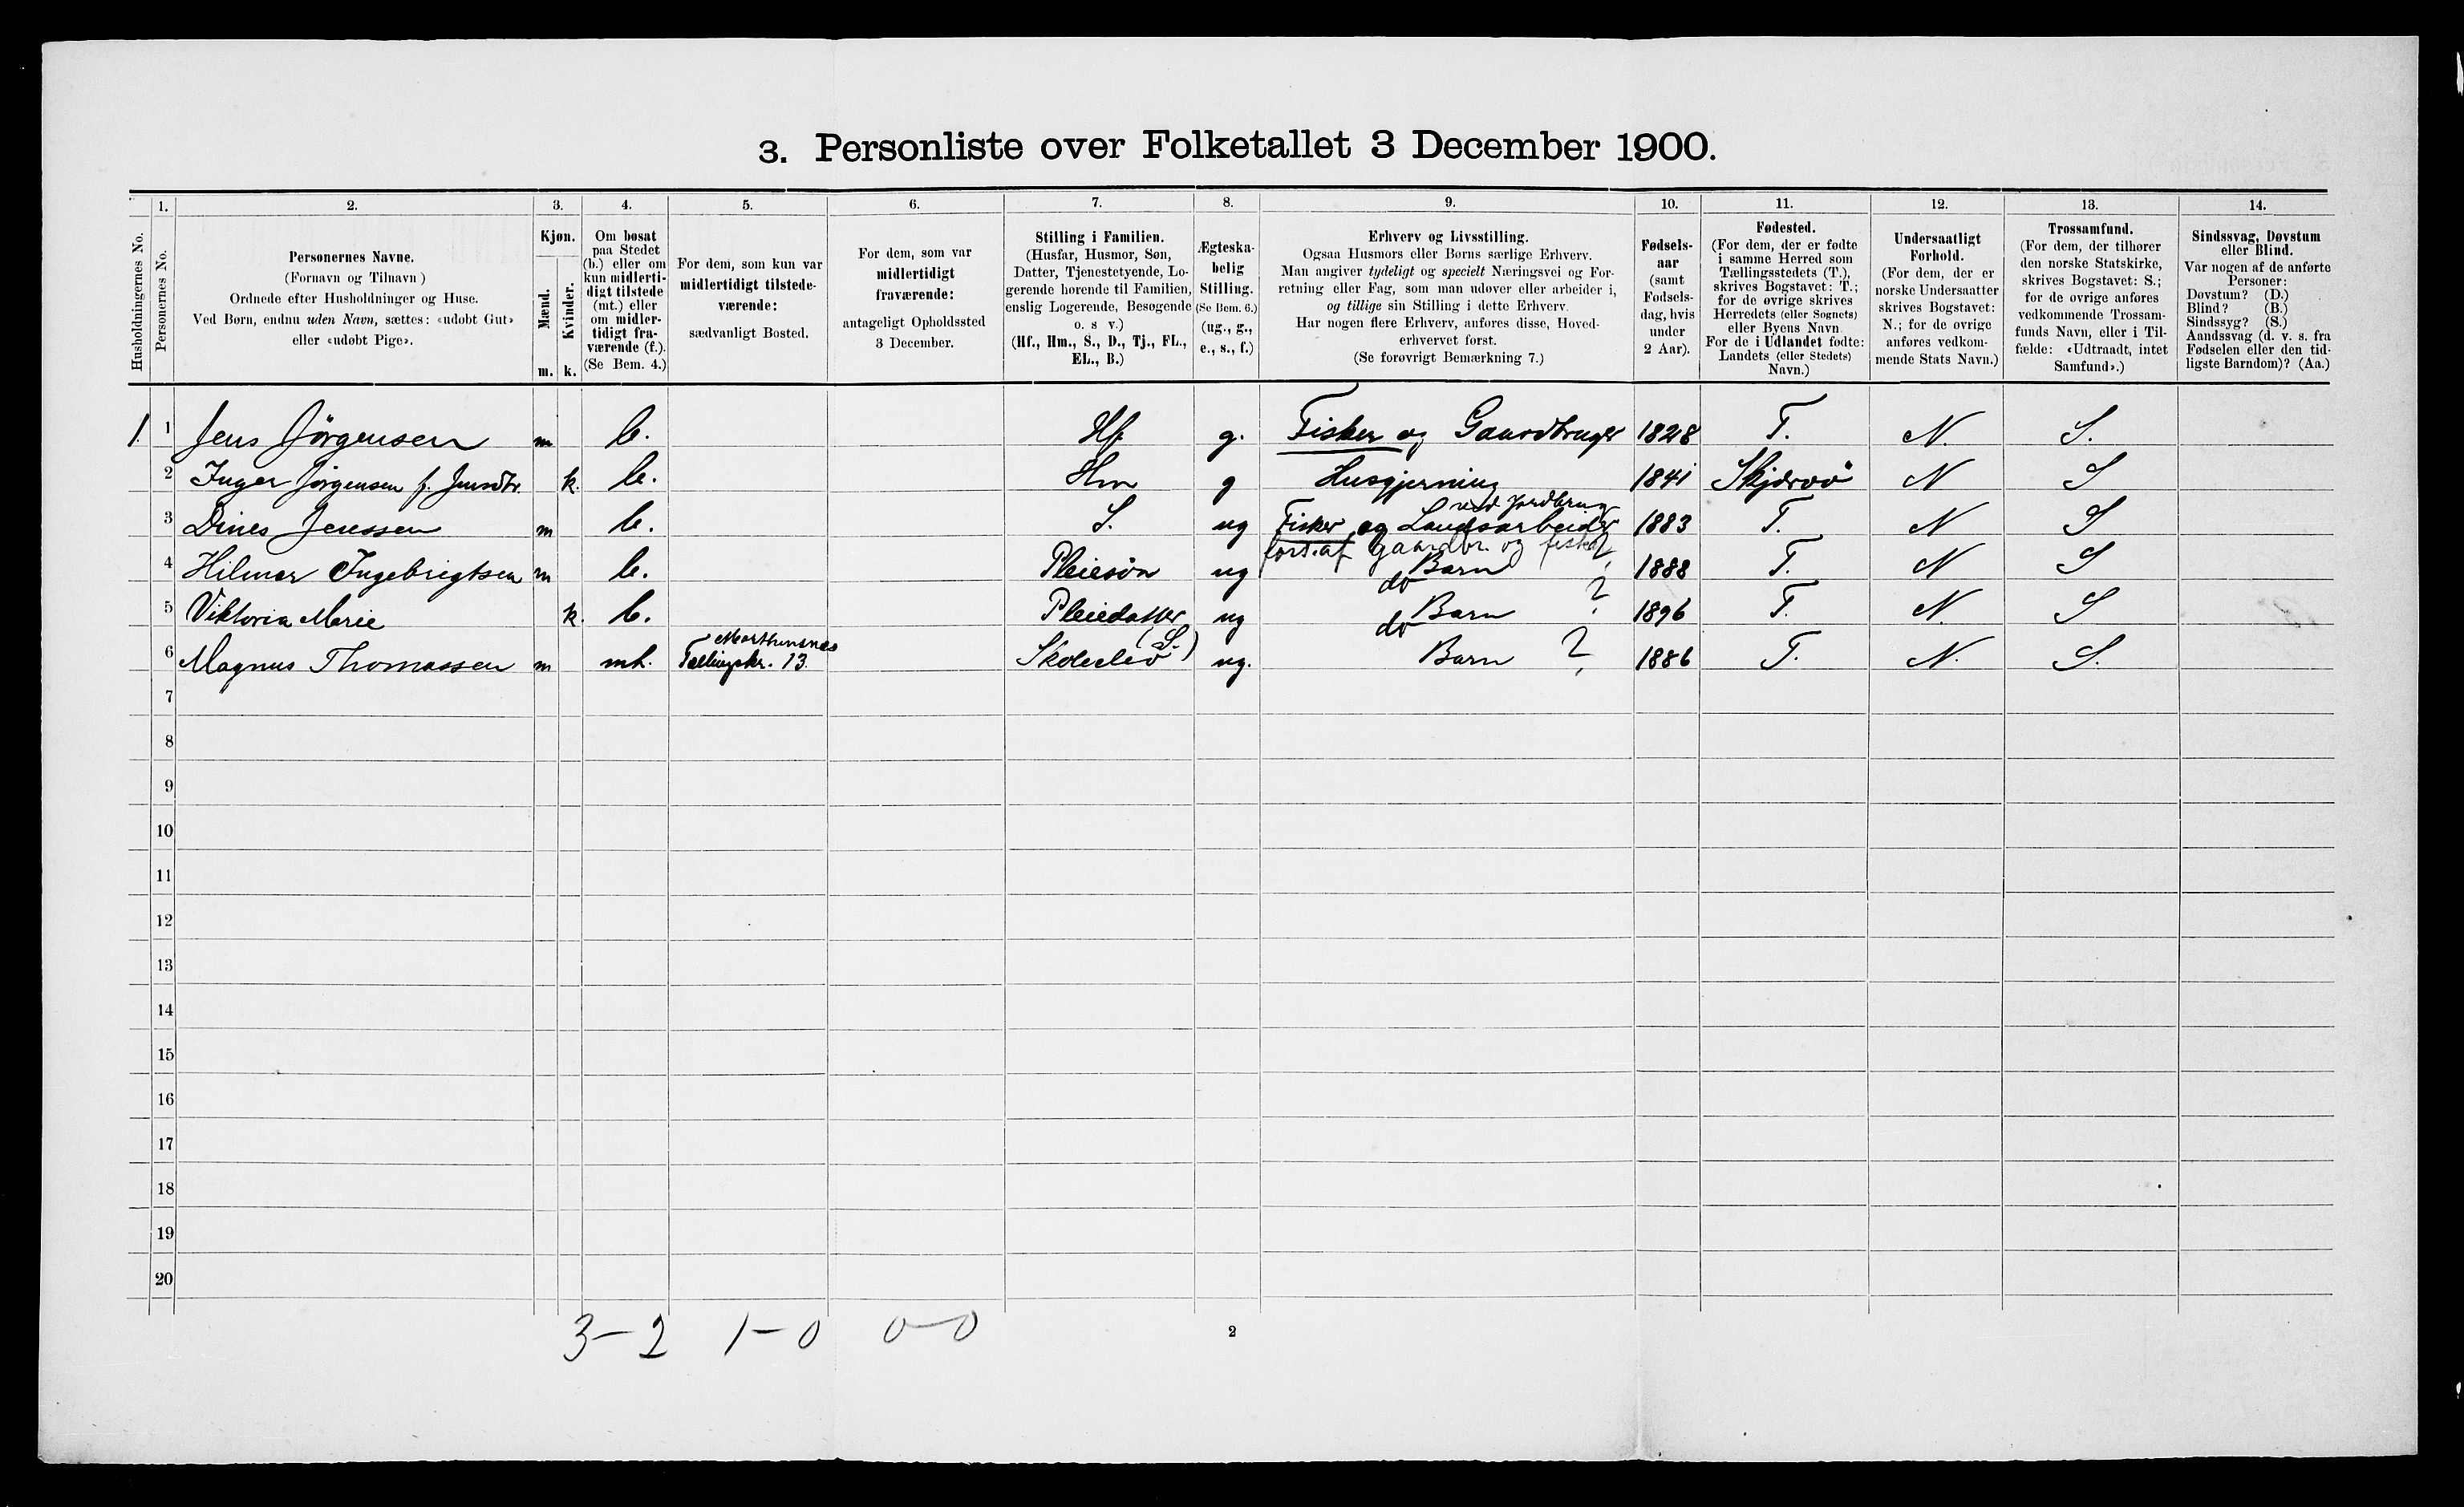 3. Personliste over Folketallet 3 December 1900.
1. 2. 3. 4. 5. 6. 7. 8. 9. 10. 11. 12. 13. 14.
Husholdningernes No.
Personernes No.
Personernes Navne.
(Fornavn og Tilnavn)
Ordnede efter Husholdninger og Huse.
Ved Børn, endnu uden Navn, sættes: «udøbt Gut»
eller «udøbt Pige».
Kjøn.
Mænd.
Kvinder.
m. k.
Om bosat
paa Stedet
(b.) eller om
kun midlerti-
digt tilstede
(mt.) eller
om midler-
tidigt fra-
værende (f.).
(Se Bem. 4.)
For dem, som kun var
midlertidigt tilstede-
værende:
sædvanligt Bosted.
For dem, som var
midlertidigt
fraværende:
antageligt Opholdssted
3 December.
Stilling i Familien.
(Husfar, Husmor, Søn,
Datter, Tjenestetyende, Lo-
gerende hørende til Familien,
enslig Logerende, Besøgende
o. s v.)
(Hf., Hm., S., D., Tj., FL.,
EL., B.)
Ægteska-
belig
Stilling.
(Se Bem. 6.)
(ug., g.,
e., s., f.)
Erhverv og Livsstilling.
Ogsaa Husmors eller Børns særlige Erhverv.
Man angiver tydeligt og specielt Næringsvei og For-
retning eller Fag, som man udøver eller arbeider i,
og tillige sin Stilling i dette Erhverv.
Har nogen flere Erhverv, anføres disse, Hoved-
erhvervet først.
(Se forøvrigt Bemærkning 7.)
Fødsels-
aar
(samt
Fødsels-
dag, hvis
under
2 Aar).
Fødested.
(For dem, der er fødte
i samme Herred som
Tællingsstedets (T.),
skrives Bogstavet: T.;
for de øvrige skrives
Herredets (eller Sognets)
eller Byens Navn.
For de i Udlandet fødte:
Landets (eller Stedets)
Navn.)
Undersaatligt
Forhold.
(For dem, der er
norske Undersaatter
skrives Bogstavet:
N.; for de øvrige
anføres vedkom-
mende Stats Navn.)
Trossamfund.
(For dem, der tilhører
den norske Statskirke,
skrives Bogstavet: S.;
for de øvrige anføres
vedkommende Trossam-
funds Navn, eller i Til-
fælde: «Udtraadt, intet
Samfund».)
Sindssvag, Døvstum
eller Blind.
Var nogen af de anførte
Personer:
Døvstum? (D.)
Blind? (B.)
Sindssyg? (S.)
Aandssvag (d. v. s. fra
Fødselen eller den tid-
ligste Barndom)? (Aa.)
1. 1 Jens Jörgensen m b. Hf g. Fisker og Gaardbruger 1828 T. N. S.
2 Inger Jörgensen f. Jensdtr. k. b. Hm g Husgjerning 1841 Skjærvö N S
ved Jordbrug
3 Dines Jenssen m b. S. ug Fisker og Landsarbeider 1883 T. N S
fors. af Gaardbr. og fisker
4 Hilmer Ingebrigtsen m b. Pleiesön ug Barn ? 1888 T. N S
do
5 Viktoria Marie k. b. Pleiedatter ug Barn ? 1896 T. N. S
do
Marthensnes (S.)
6 Magnus Thomassen m mt. Tællingskr. 13. Skoleelev ug. Barn ? 1886 T. N. S.
7
8
9
10
11
12
13
14
15
16
17
18
19
20
3-2 1-0 0-0
2